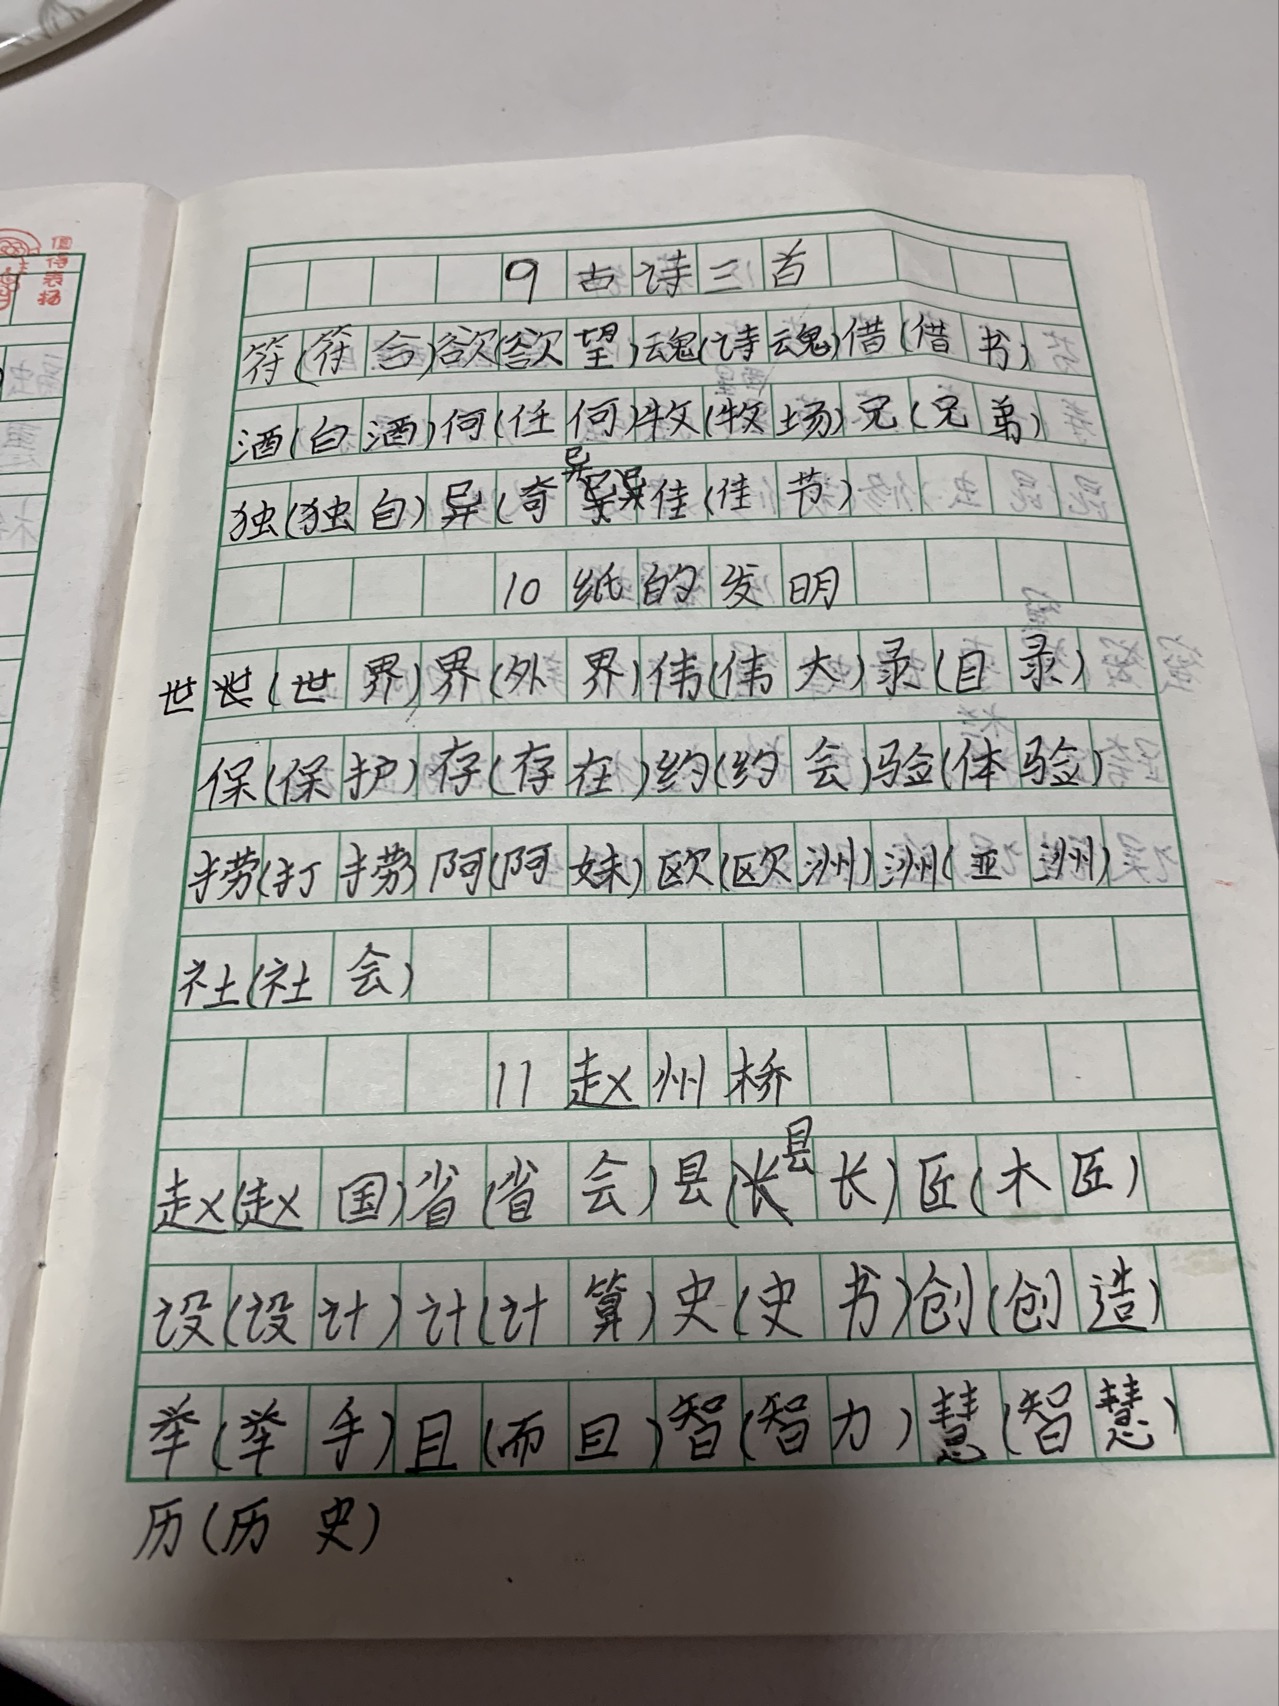 值得表扬
9 古诗三首
符(符合)欲(欲望)魂(诗魂)借(借书)
酒(白酒)何(任何)牧(牧场)兄(兄弟)
独(独自)异(奇异)佳(佳节)
10 纸的发明
世(世界)界(外界)伟(伟大)录(目录)
保(保护)存(存在)约(约会)验(体验)
捞(打捞)阿(阿妹)欧(欧洲)洲(亚洲)
社(社会)
11 赵州桥
赵(赵国)省(省会)县(县长)匠(木匠)
设(设计)计(计算)史(史书)创(创造)
举(举手)且(而且)智(智力)慧(智慧)
历(历史)